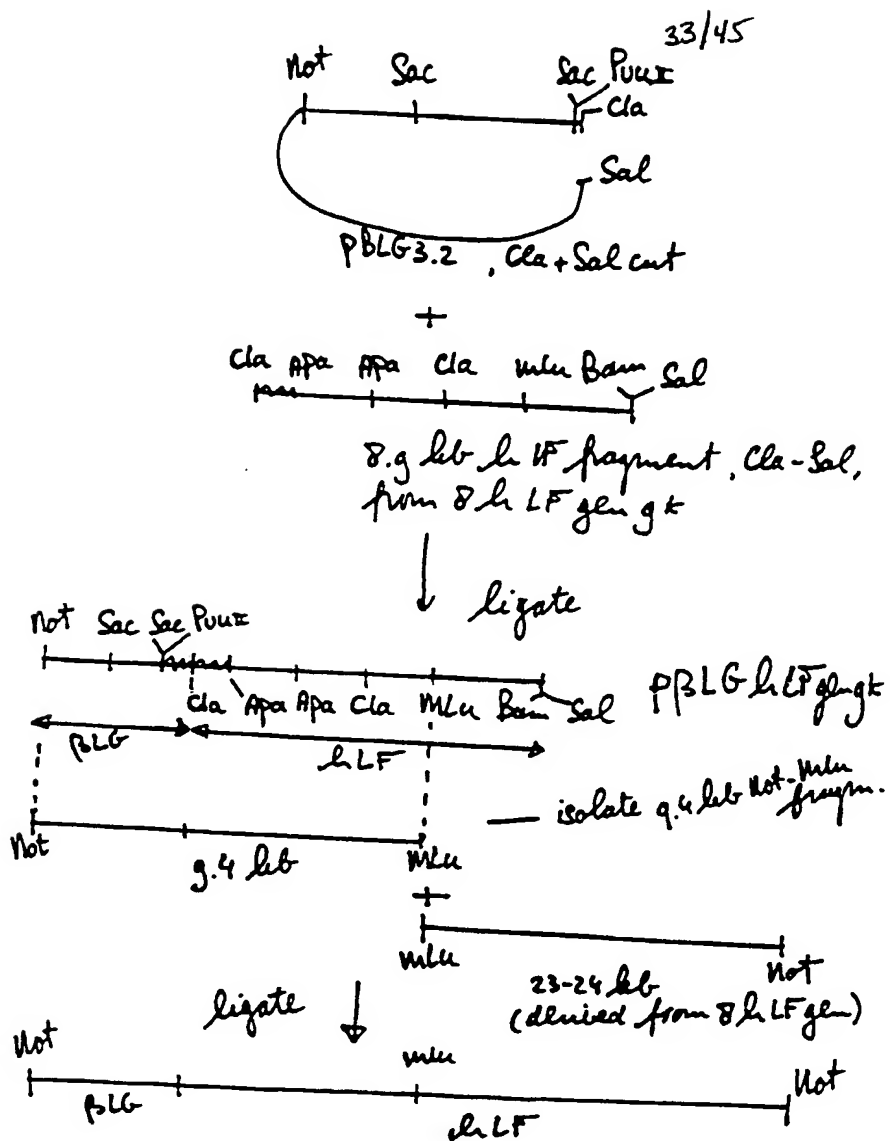 33/45
Not Sac Sac PvuII
Cla
Sal
pBLG3.2, Cla + Sal cut
+
Cla Apa Apa Cla Mlu Bam Sal
8.9 kb hLF fragment, Cla-Sal,
from 8hLFgen9k
ligate
Not Sac Sac PvuII
Cla Apa Apa Cla Mlu Bam Sal pβLGhLFgen9k
βLG hLF
isolate 9.4 kb Not-Mlu
fragm.
Not 9.4 kb Mlu
+
Mlu Not
23-24 kb
(derived from 8hLFgen)
ligate
Not Mlu Not
βLG hLF